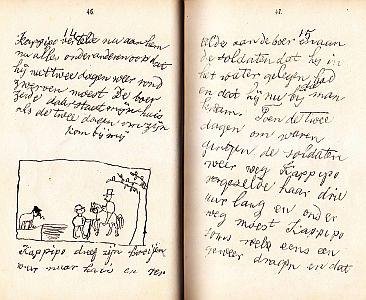 46.
14
Kappipo vertelde nu aan hem
nu alles onder anderen ook dat
hij nu twee dagen weer rond
zwerven moest De boer
zeide daar staat mijn huis
als de twee dagen om zijn
kom bij mij
Kappipo dreef zijn
naar huis en ver
47.
15
telde aan de boer
de soldaten dat hij in
het water gelegen had
en dat hij nu bij die man
kwam. Toen de twee
dagen om waren
gingen de soldaten
weer weg Kappipo
vergezelde haar drie
uur lang en onder
weg moest Kappipo
soms wels eens een
geweer dragen en dat